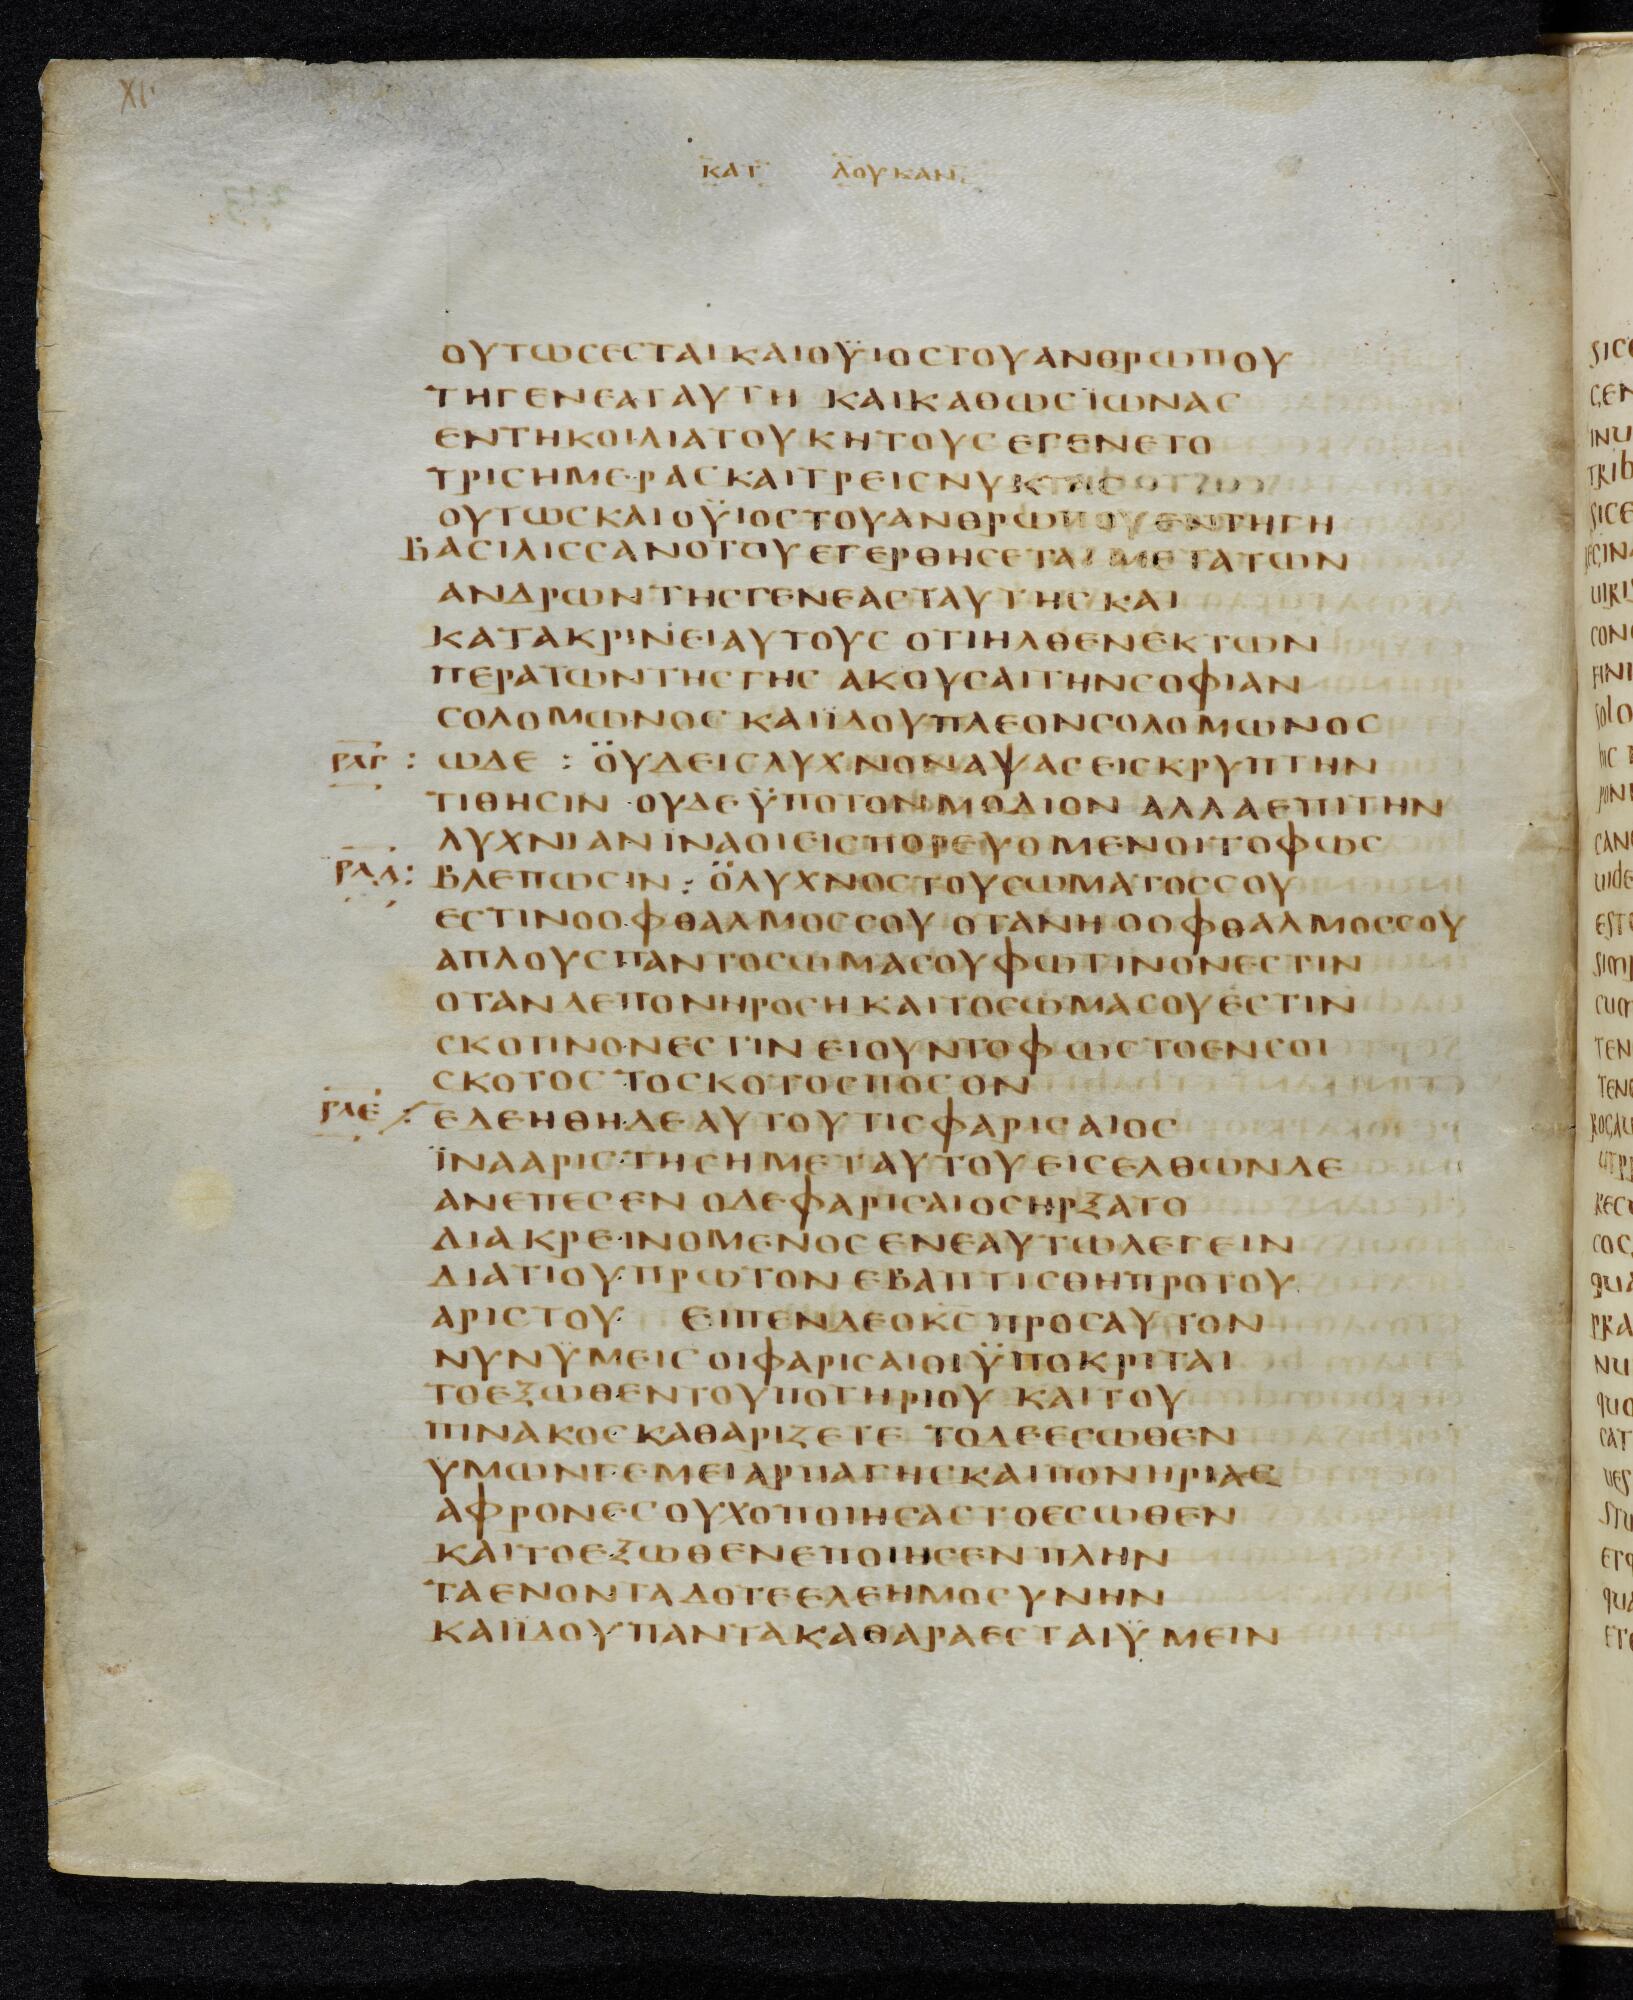 XI·
ΚΑΤ ΛΟΥΚΑΝ
ΟΥΤωϹΕϹΤΑΙΚΑΙΟΫΙΟϹΤΟΥΑΝΘΡωΠΟΥ
ΤΗΓΕΝΕΑΤΑΥΤΗ ΚΑΙΚΑΘωϹΪωΝΑϹ
ΕΝΤΗΚΟΙΛΙΑΤΟΥΚΗΤΟΥϹ ΕΓΕΝΕΤΟ
ΤΡΙϹΗΜΕΡΑϹΚΑΙΤΡΕΙϹΝΥΚΤΑϹ
ΟΥΤωϹΚΑΙΟΫΙΟϹΤΟΥΑΝΘΡωΠΟΥΕΝΤΗΓΗ
ΒΑϹΙΛΙϹϹΑΝΟΤΟΥΕΓΕΡΘΗϹΕΤΑΙΜΕΤΑΤωΝ
ΑΝΔΡωΝΤΗϹΓΕΝΕΑϹΤΑΥΤΗϹΚΑΙ
ΚΑΤΑΚΡΙΝΕΙΑΥΤΟΥϹ ΟΤΙΗΛΘΕΝΕΚΤωΝ
ΠΕΡΑΤωΝΤΗϹΓΗϹ ΑΚΟΥϹΑΙΤΗΝϹΟΦΙΑΝ
ϹΟΛΟΜωΝΟϹ ΚΑΙΪΔΟΥΠΛΕΟΝϹΟΛΟΜωΝΟϹ
ΡΛΓ : ωΔΕ : ΟΥΔΕΙϹΛΥΧΝΟΝΑΨΑϹΕΙϹΚΡΥΠΤΗΝ
ΤΙΘΗϹΙΝ ΟΥΔΕΫΠΟΤΟΝΜΟΔΙΟΝ ΑΛΛΑΕΠΙΤΗΝ
ΛΥΧΝΙΑΝΪΝΑΟΙΕΙϹΠΟΡΕΥΟΜΕΝΟΙΤΟΦωϹ
ΡΛΔ : ΒΛΕΠωϹΙΝ : ΟΛΥΧΝΟϹΤΟΥϹωΜΑΤΟϹϹΟΥ
ΕϹΤΙΝΟΟΦΘΑΛΜΟϹϹΟΥ ΟΤΑΝΗΟΟΦΘΑΛΜΟϹϹΟΥ
ΑΠΛΟΥϹΠΑΝΤΟϹωΜΑϹΟΥΦωΤΙΝΟΝΕϹΤΙΝ
ΟΤΑΝΔΕΠΟΝΗΡΟϹΗΚΑΙΤΟϹωΜΑϹΟΥΕϹΤΙΝ
ϹΚΟΤΙΝΟΝΕϹΤΙΝ ΕΙΟΥΝΤΟΦωϹΤΟΕΝϹΟΙ
ϹΚΟΤΟϹ ΤΟϹΚΟΤΟϹΠΟϹΟΝ
ΡΛΕ : ΕΔΕΗΘΗΔΕΑΥΤΟΥΤΙϹΦΑΡΙϹΑΙΟϹ
ΪΝΑΑΡΙϹΤΗϹΗΜΕΤΑΥΤΟΥΕΙϹΕΛΘωΝΔΕ
ΑΝΕΠΕϹΕΝ ΟΔΕΦΑΡΙϹΑΙΟϹΗΡΞΑΤΟ
ΔΙΑΚΡΕΙΝΟΜΕΝΟϹΕΝΕΑΥΤωΛΕΓΕΙΝ
ΔΙΑΤΙΟΥΠΡωΤΟΝΕΒΑΠΤΙϹΘΗΠΡΟΤΟΥ
ΑΡΙϹΤΟΥ ΕΙΠΕΝΔΕΟΚϹΠΡΟϹΑΥΤΟΝ
ΝΥΝΫΜΕΙϹΟΙΦΑΡΙϹΑΙΟΙΫΠΟΚΡΙΤΑΙ
ΤΟΕΞωΘΕΝΤΟΥΠΟΤΗΡΙΟΥ ΚΑΙΤΟΥ
ΠΙΝΑΚΟϹΚΑΘΑΡΙΖΕΤΕ ΤΟΔΕΕϹωΘΕΝ
ΥΜωΝΓΕΜΕΙΑΡΠΑΓΗϹΚΑΙΠΟΝΗΡΙΑϹ
ΑΦΡΟΝΕϹΟΥΧΟΠΟΙΗϹΑϹΤΟΕϹωΘΕΝ
ΚΑΙΤΟΕΞωΘΕΝΕΠΟΙΗϹΕΝΠΛΗΝ
ΤΑΕΝΟΝΤΑΔΟΤΕΕΛΕΗΜΟϹΥΝΗΝ
ΚΑΙΪΔΟΥΠΑΝΤΑΚΑΘΑΡΑΕϹΤΑΙΫΜΕΙΝ